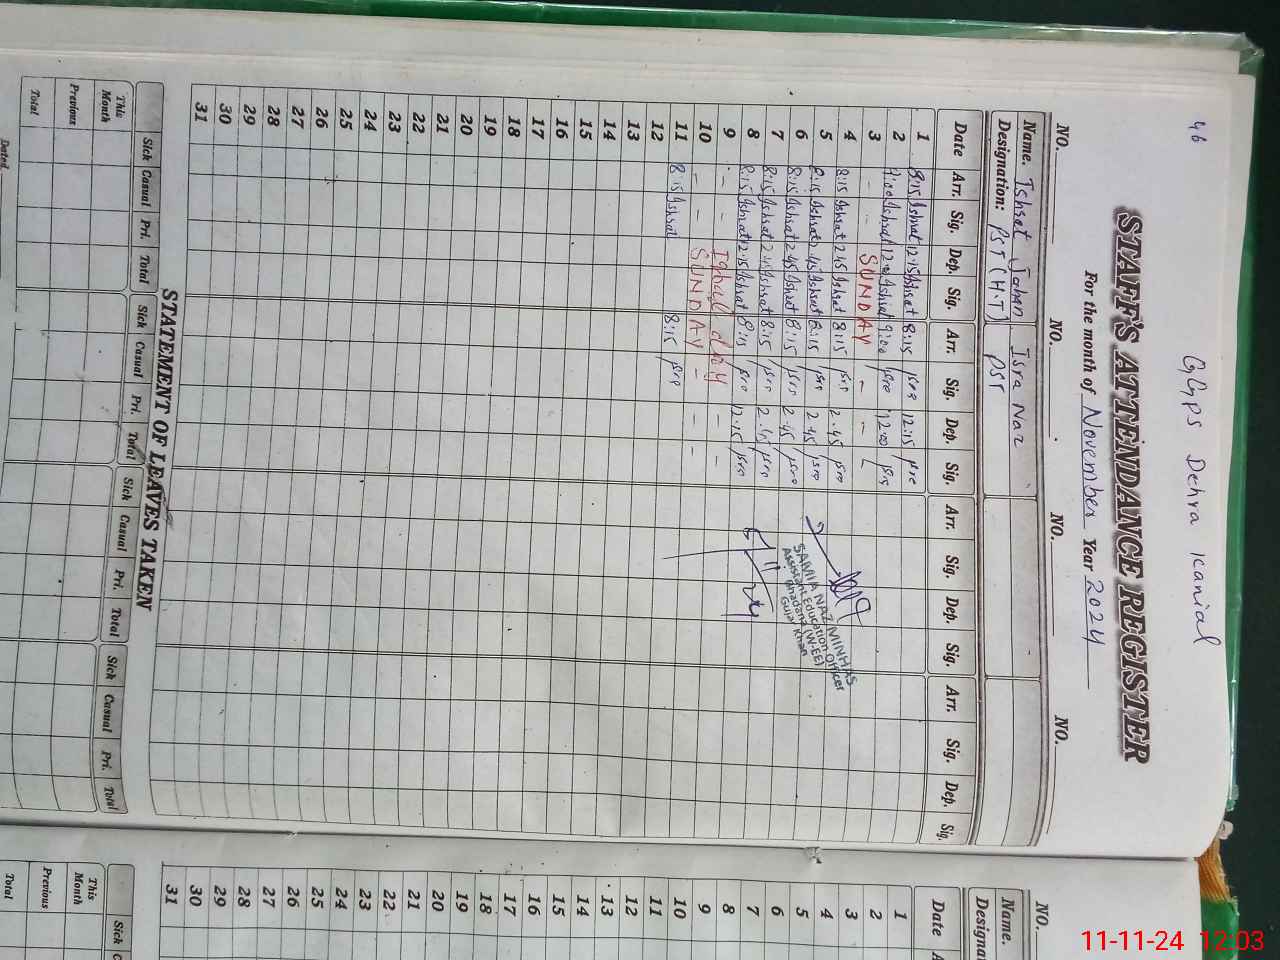 46
GGPS Dehra Kanial
STAFF'S ATTENDANCE REGISTER
For the month of November Year 2024
NO. NO. NO. NO.
Name. Ishrat Jahan Isra Naz
Designation: PST (H.T) PST
Date Arr. Sig. Dep. Sig. Arr. Sig. Dep. Sig. Arr. Sig. Dep. Sig. Arr. Sig. Dep. Sig.
1 8:15 Ishrat 12:15 Ishrat 8:15 Isra 12:15 Isra
2 9:00 Ishrat 12:00 Ishrat 9:00 Isra 12:00 Isra
3 - - SUNDAY - - -
4 8:15 Ishrat 2:45 Ishrat 8:15 Isra 2:45 Isra
5 8:15 Ishrat 2:45 Ishrat 8:15 Isra 2:45 Isra
6 8:15 Ishrat 2:45 Ishrat 8:15 Isra 2:45 Isra
7 8:15 Ishrat 2:45 Ishrat 8:15 Isra 2:45 Isra
8 8:15 Ishrat 12:15 Ishrat 8:15 Isra 12:15 Isra
9 - - Iqball day - -
10 - - SUNDAY - - -
11 8:15 Ishrat 8:15 Isra
12
13
14
15
16
17
18
19
20
21
22
23
24
25
26
27
28
29
30
31
SAMIA NAZ MINHAS
Assistant Education Officer
(W-EE)
Gujar Khan
STATEMENT OF LEAVES TAKEN
Sick Casual Pri. Total Sick Casual Pri. Total Sick Casual Pri. Total Sick Casual Pri. Total
This Month
Previous
Total
Dated.
NO.
Name.
Designa
Date A
1
2
3
4
5
6
7
8
9
10
11
12
13
14
15
16
17
18
19
20
21
22
23
24
25
26
27
28
29
30
31
Sick C
This Month
Previous
Total
11-11-24 12:03